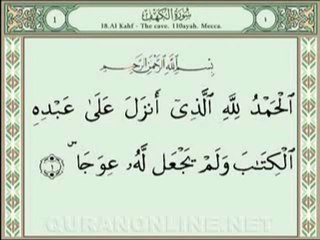 ١ سُورَةُ الْكَهْفِ ١
18.Al Kahf - The cave. 110ayah. Mecca.
بِسْمِ اللَّهِ الرَّحْمَٰنِ الرَّحِيمِ
ٱلْحَمْدُ لِلَّهِ ٱلَّذِىٓ أَنزَلَ عَلَىٰ عَبْدِهِ
ٱلْكِتَـٰبَ وَلَمْ يَجْعَل لَّهُۥ عِوَجَا ۜ ١
QURANONLINE.NET